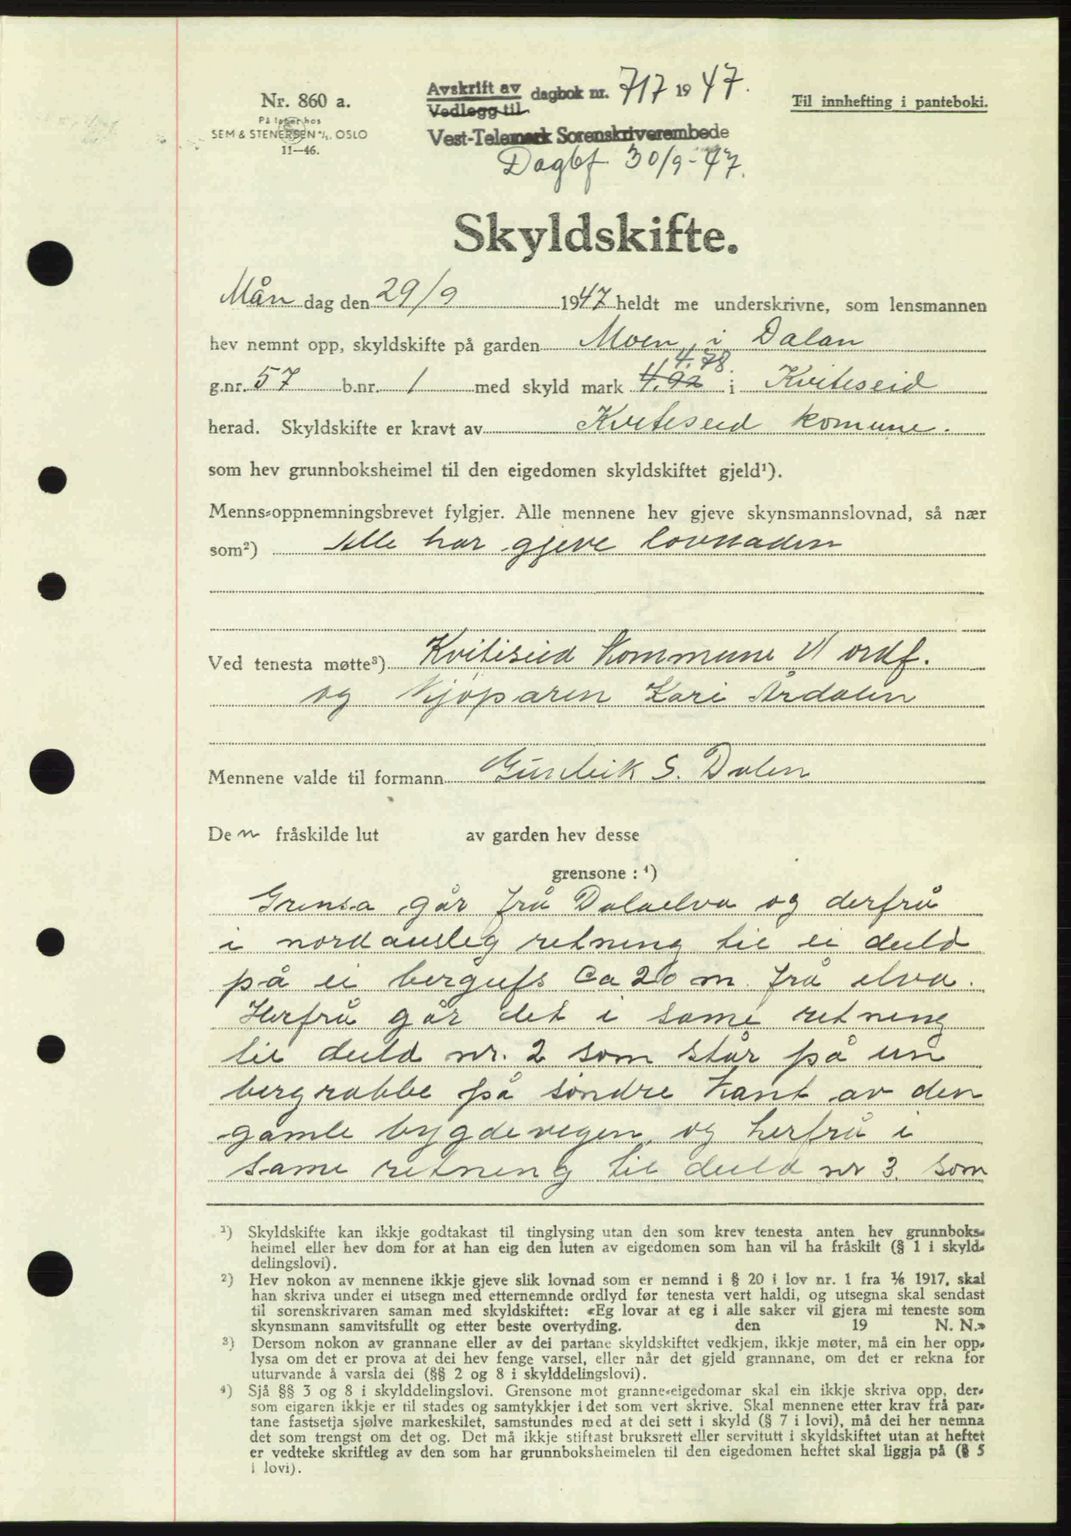 Nr. 860 a.
På lager hos
SEM & STENERSEN A/S. OSLO
11—46.
Avskrift av
Vedlegg til
dagbok nr. 717 1947.
Vest-Telemark Sorenskriverembede
Dagbf 30/9-47.
Til innhefting i panteboki.
Skyldskifte.
Mån dag den 29/9 1947 heldt me underskrivne, som lensmannen
hev nemnt opp, skyldskifte på garden Moen i Dalan
4.78.
g.nr. 57 b.nr. 1 med skyld mark 4.92 i Kviteseid
herad. Skyldskifte er kravt av Kviteseid komune.
som hev grunnboksheimel til den eigedomen skyldskiftet gjeld¹).
Menns-oppnemningsbrevet fylgjer. Alle mennene hev gjeve skynsmannslovnad, så nær
som²) Alle har gjeve lovnaden
Ved tenesta møtte³) Kviteseid Kommune v/ ordf.
og Kjöparen Kari Årdalen
Mennene valde til formann Gunleik S. Dalen
De n fråskilde lut av garden hev desse
grensone : ⁴)
Grensa går frå Dalaelva og derfrå
i nordausleg retning til ei duld
på ei bergufs Ca 20 m. frå elva.
Herfrå går det i same retning
til duld nr. 2 som står på ein
bergrabbe på söndre kant av den
gamle bygdevegen, og herfrå i
same retning til duld nr 3. som
¹) Skyldskifte kan ikkje godtakast til tinglysing utan den som krev tenesta anten hev grunnboks-
heimel eller hev dom for at han eig den luten av eigedomen som han vil ha fråskilt (§ 1 i skyld-
delingslovi).
²) Hev nokon av mennene ikkje gjeve slik lovnad som er nemnd i § 20 i lov nr. 1 fra ⅙ 1917, skal
han skriva under ei utsegn med etternemnde ordlyd før tenesta vert haldi, og utsegna skal sendast
til sorenskrivaren saman med skyldskiftet: «Eg lovar at eg i alle saker vil gjera mi teneste som
skynsmann samvitsfullt og etter beste overtyding. den 19 N. N.»
³) Dersom nokon av grannane eller av dei partane skyldskiftet vedkjem, ikkje møter, må ein her opp-
lysa om det er prova at dei hev fenge varsel, eller når det gjeld grannane, om det er rekna for
uturvande å varsla dei (§§ 2 og 8 i skylddelingslovi).
⁴) Sjå §§ 3 og 8 i skylddelingslovi. Grensone mot granne-eigedomar skal ein ikkje skriva opp, der-
som eigaren ikkje er til stades og samtykkjer i det som vert skrive. Skal mennene etter krav frå par-
tane fastsetja sjølve markeskilet, samstundes med at dei sett i skyld (§ 7 i lovi), må dei her nemna
det som trengst om det og. Det må ikkje stiftast bruksrett eller servitutt i skyldskiftet utan at heftet
er vedteke skriftleg av den som har grunnboksheimelen til den eigedomen heftet skal liggja på (§ 5
i lovi).